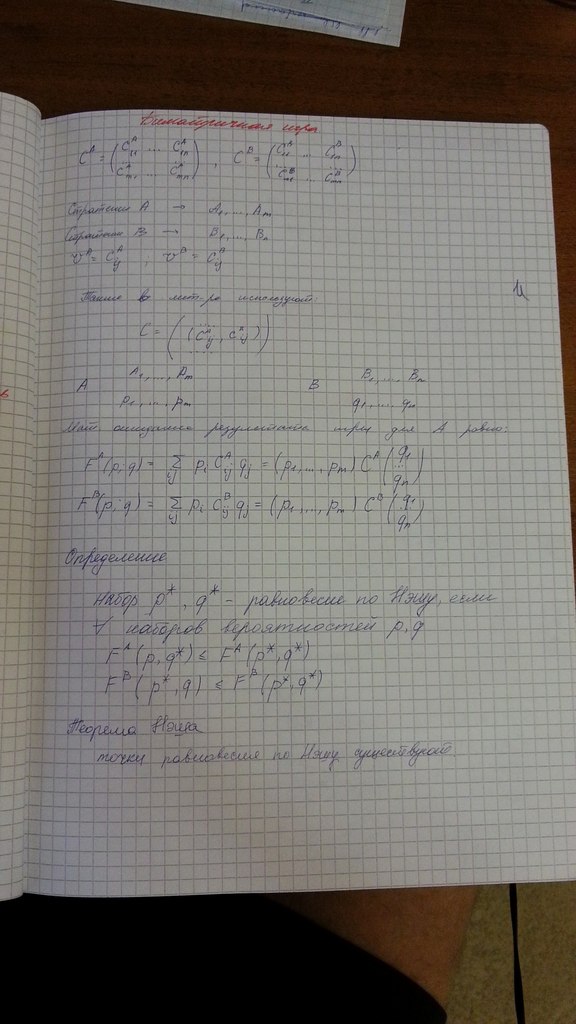 Биматричная игра
C^A = (C^A_11 ... C^A_1n ... C^A_m1 ... C^A_mn), C^B = (C^B_11 ... C^B_1n ... C^B_m1 ... C^B_mn)
Стратегии A → A_1, ..., A_m
Стратегии B → B_1, ..., B_n
v^A = C^A_ij ; v^B = C^B_ij
Также в лит-ре используют:
C = (... (C^A_ij, C^B_ij) ...)
A A_1, ..., A_m B B_1, ..., B_n
p_1, ..., p_m q_1, ..., q_n
Мат. ожидание результата игры для A равно:
F^A(p, q) = Σ_ij p_i C^A_ij q_j = (p_1, ..., p_m) C^A (q_1 ... q_n)
F^B(p, q) = Σ_ij p_i C^B_ij q_j = (p_1, ..., p_m) C^B (q_1 ... q_n)
Определение
Набор p*, q* – равновесие по Нэшу, если
∀ наборов вероятностей p, q
F^A(p, q*) ≤ F^A(p*, q*)
F^B(p*, q) ≤ F^B(p*, q*)
Теорема Нэша
точки равновесия по Нэшу существуют.